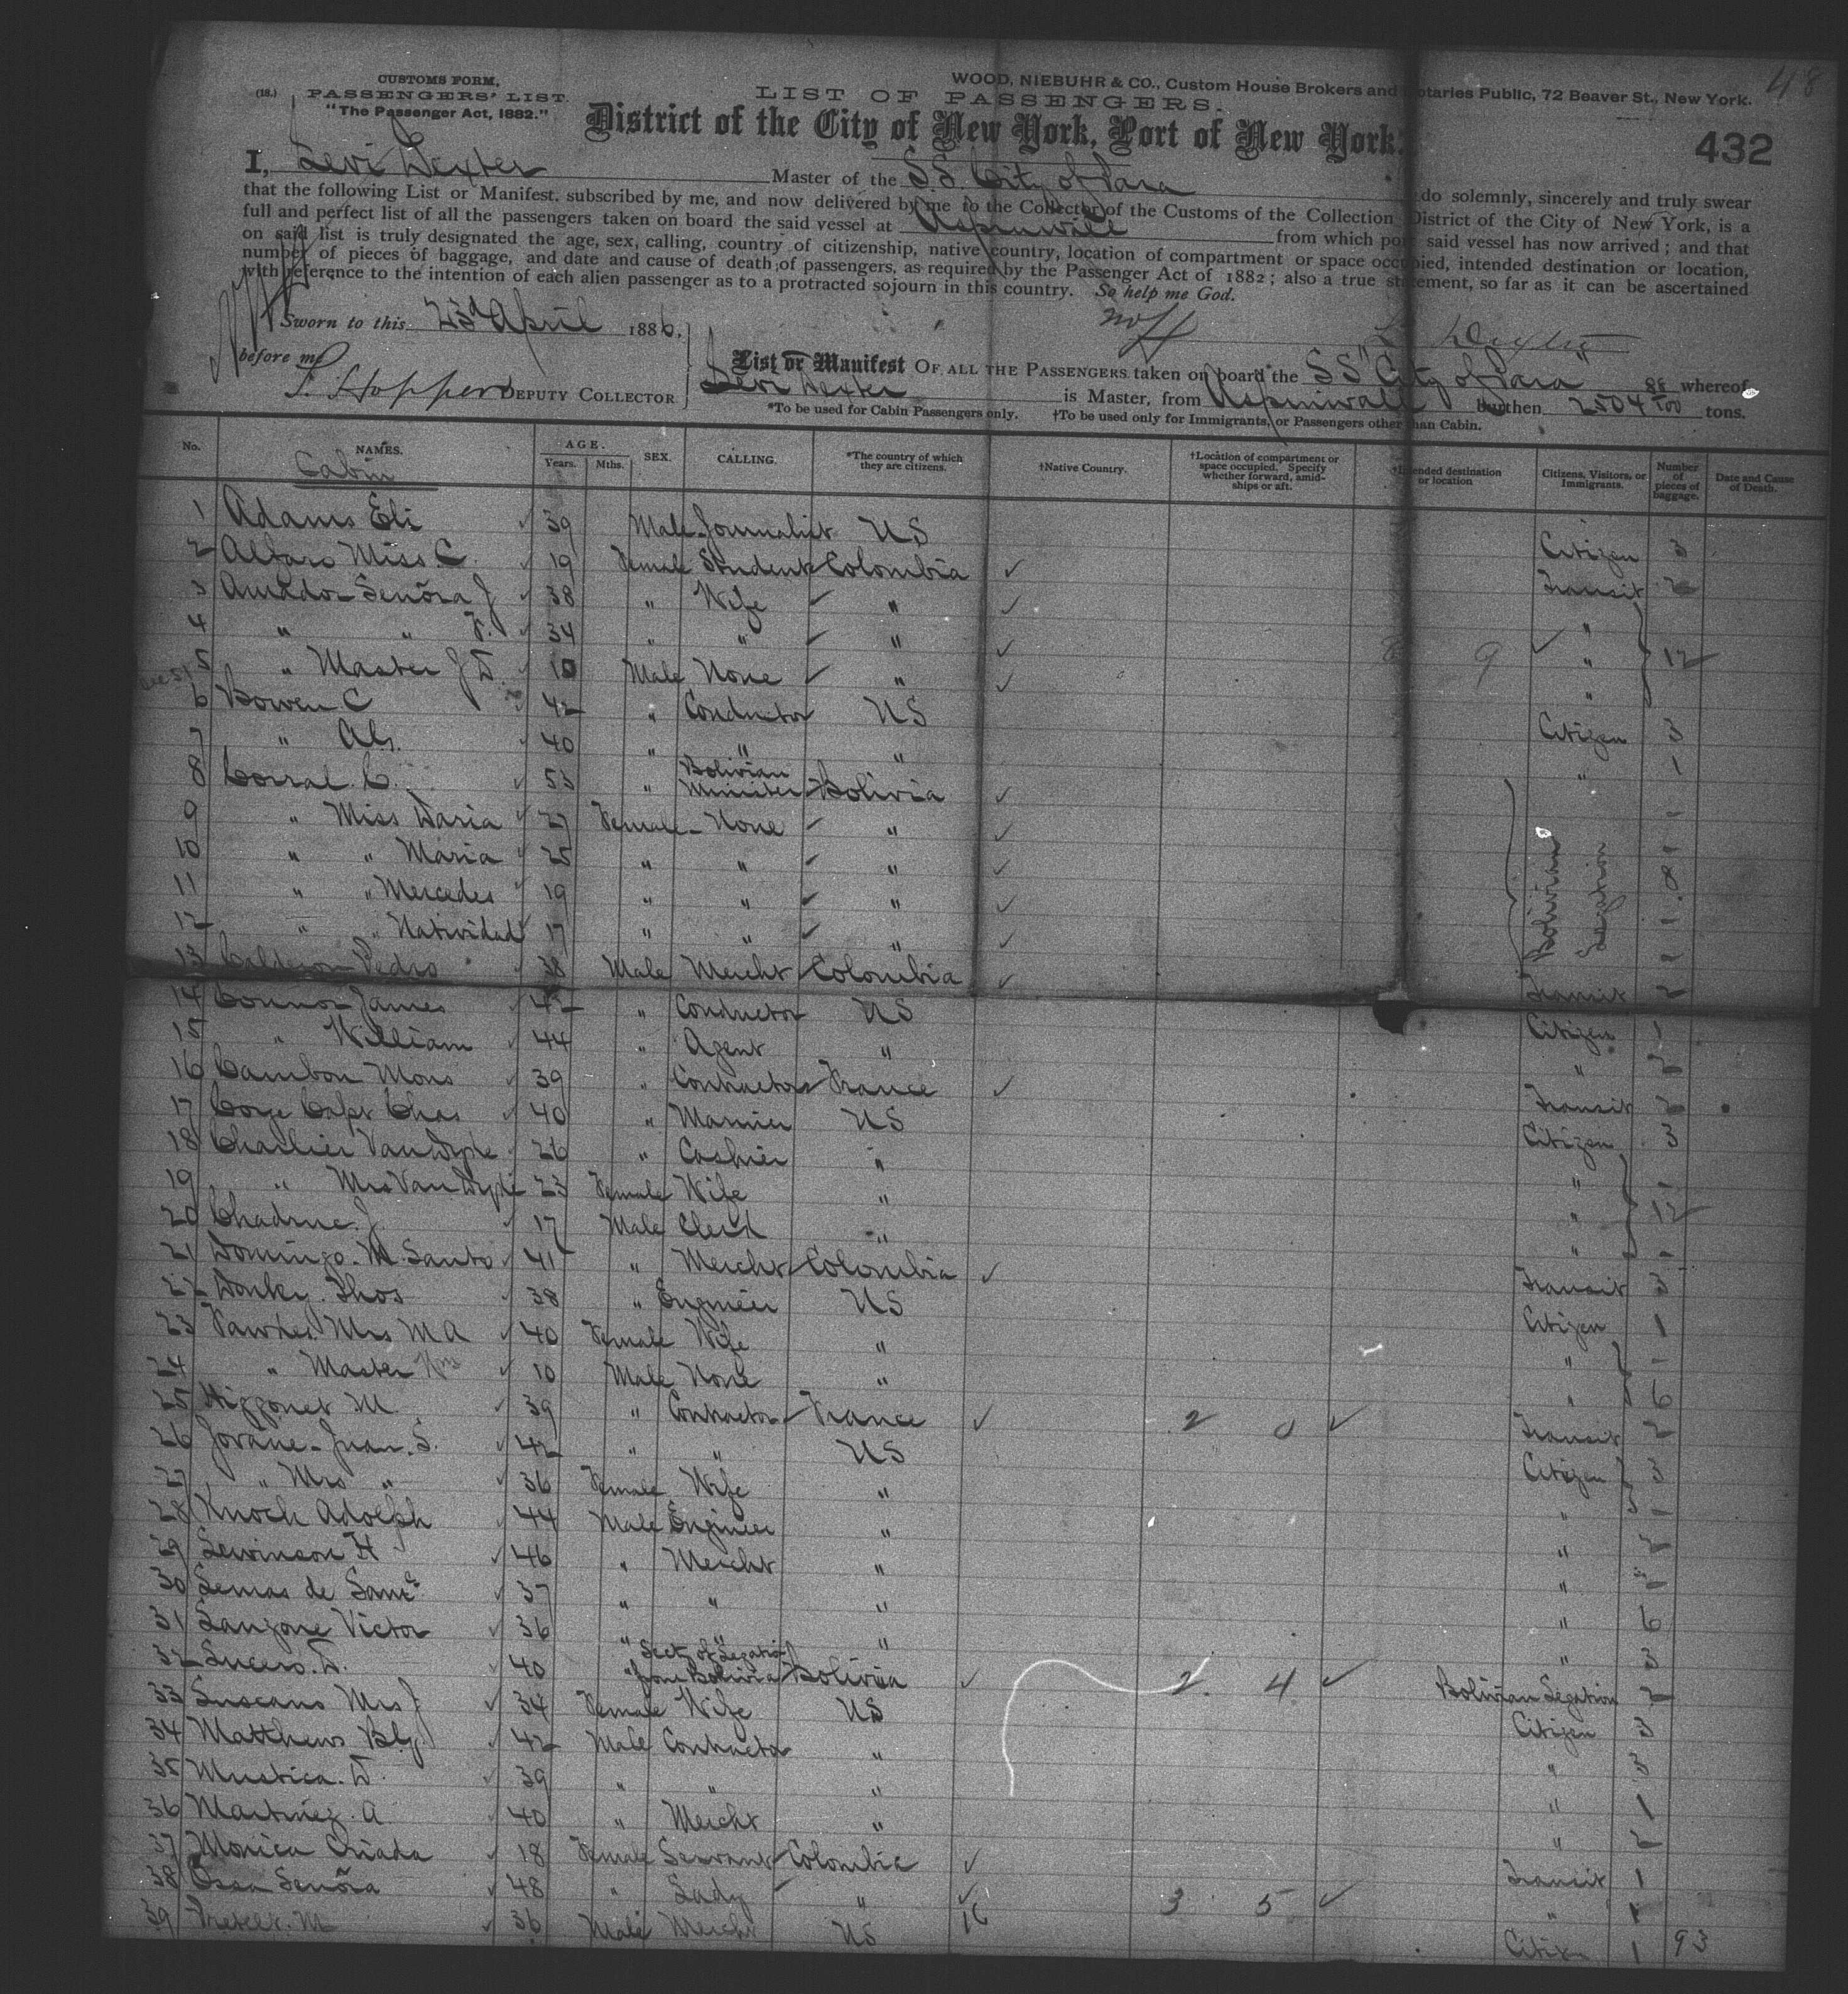 48
CUSTOMS FORM.
(18.) PASSENGERS' LIST.
"The Passenger Act, 1882."
WOOD, NIEBUHR & CO., Custom House Brokers and Notaries Public, 72 Beaver St., New York.
LIST OF PASSENGERS.
District of the City of New York, Port of New York.
432
I, Levi Dexter Master of the S.S. City of Para do solemnly, sincerely and truly swear
that the following List or Manifest, subscribed by me, and now delivered by me to the Collector of the Customs of the Collection District of the City of New York, is a
full and perfect list of all the passengers taken on board the said vessel at Aspinwall from which port said vessel has now arrived; and that
on said list is truly designated the age, sex, calling, country of citizenship, native country, location of compartment or space occupied, intended destination or location,
number of pieces of baggage, and date and cause of death of passengers, as required by the Passenger Act of 1882; also a true statement, so far as it can be ascertained
with reference to the intention of each alien passenger as to a protracted sojourn in this country. So help me God.
Sworn to this 23d April 1886,
L. Dexter
before me
S. Hopper DEPUTY COLLECTOR
List or Manifest OF ALL THE PASSENGERS taken on board the SS "City of Para" whereof
Levi Dexter is Master, from Aspinwall burthen 2504 88/100 tons.
*To be used for Cabin Passengers only. †To be used only for Immigrants, or Passengers other than Cabin.
No. NAMES. AGE. Years. Mths. SEX. CALLING. *The country of which they are citizens. †Native Country. †Location of compartment or space occupied. Specify whether forward, amidships or aft. †Intended destination or location Citizens, Visitors, or Immigrants. Number of pieces of baggage. Date and Cause of Death.
Cabin
1 Adams Eli 39 Male Journalist US Citizen 3
2 Alfaro Miss C. 19 Female Student Colombia Transit 2
3 Amador Señora J 38 " Wife " "
4 " " F. 34 " " " " 12
5 " Master J D. 10 Male None " "
6 Bowen C 42 " Conductor US Citizen 3
7 " Al. 40 " " " " 1
8 Corral C. 53 " Bolivian Minister Bolivia Bolivian Legation -
9 " Miss Daria 27 Female None " -
10 " " Maria 25 " " " 8
11 " " Mercedes 19 " " " -
12 " " Natividad 17 " " " -
13 Calderon Pedro 38 Male Mercht Colombia Transit 2
14 Connor James 42 " Conductor US Citizen 1
15 " William 44 " Agent " " 2
16 Cambon Mons 39 " Contractor France Transit 2
17 Capt Chas 40 " Mariner US Citizen 3
18 Charlier Van Wyck 26 " Cashier " " -
19 " Mrs Van Wyck 23 Female Wife " " 12
20 J. 17 Male Clerk " " -
21 Domingo. M. Santo 41 " Mercht Colombia Transit 3
22 Thos 38 " Engineer US Citizen 1
23 Mrs M A 40 Female Wife " " -
24 " Master Wm 10 Male None " " 6
25 M. 39 " Contractor France 2 0 Transit 2
26 Jovane Juan. S. 42 " " US Citizen 3
27 " Mrs " 36 Female Wife " " -
28 Knoch Adolph 44 Male Engineer " " 2
29 Lewinson H 46 " Mercht " " 2
30 Lemas de 37 " " " " 6
31 Lanzone Victor 36 " " " " 3
32 Lucero. D. 40 " Secty of Legation from Bolivia Bolivia 2 4 Bolivian Legation 2
33 Luscano Mrs J 34 Female Wife US Citizen 3
34 Matthews Blj. 42 Male Contractor " " 3
35 Mustica. D. 39 " " " " 1
36 Martinez. A 40 " Mercht " " 2
37 Monica Criada 18 Female Servant Colombia Transit 1
38 Ossa Señora 48 " Lady " 3 5 " 1
39 M 36 Male Mercht US 16 Citizen 1 93